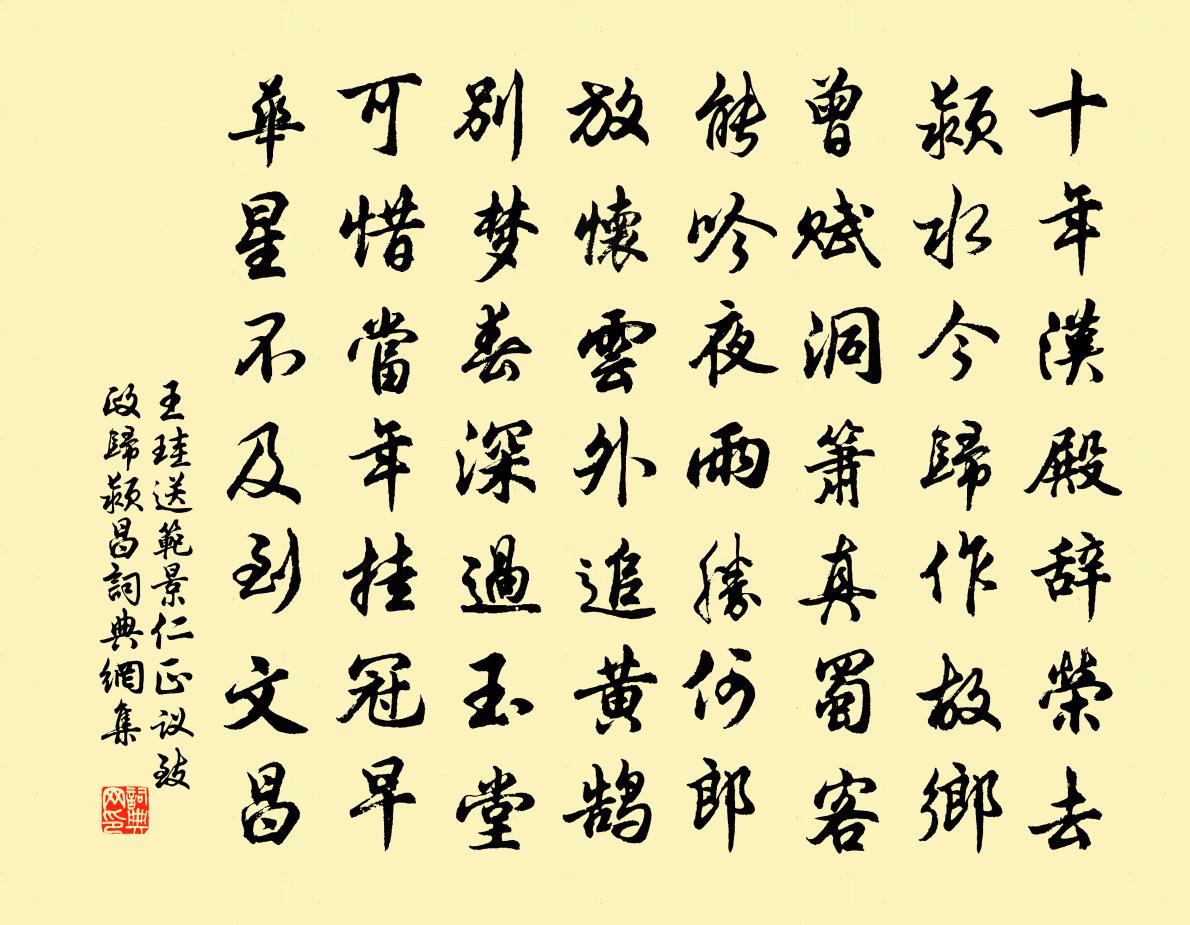 十年漢殿辞榮去
潁水今歸作故鄉
曾賦洞簫真蜀客
能吟夜雨勝何郎
放懷雲外追黃鹄
別梦春深過玉堂
可惜當年挂冠早
華星不及到文昌
王珪送範景仁正议致
政歸潁昌詞典網集
詞典
网印